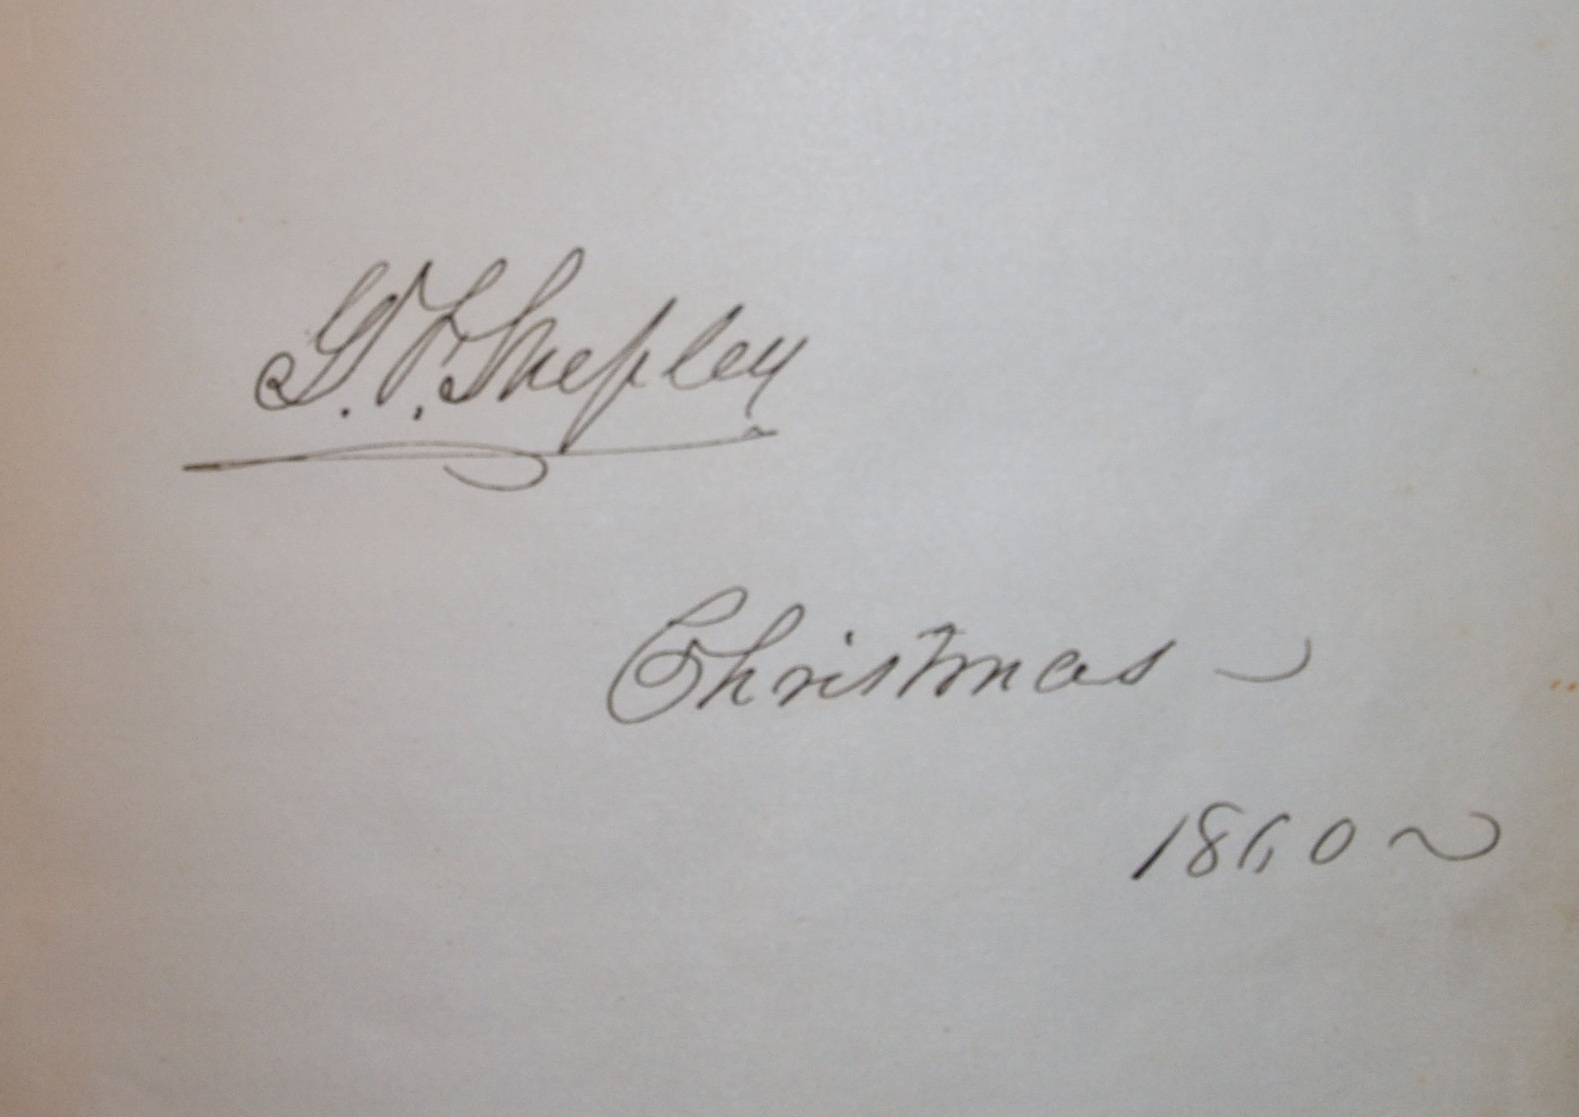 G. F. Shepley
Christmas
1860